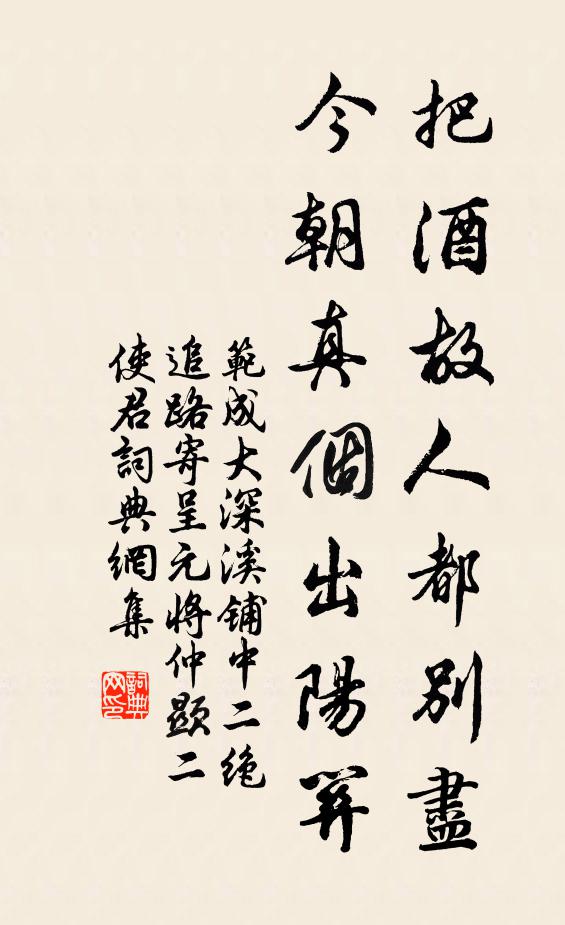 把酒故人都別盡
今朝真個出陽關
範成大深溪鋪中二絕
追路寄呈元將仲顯二
使君詞典網集
詞典
网印